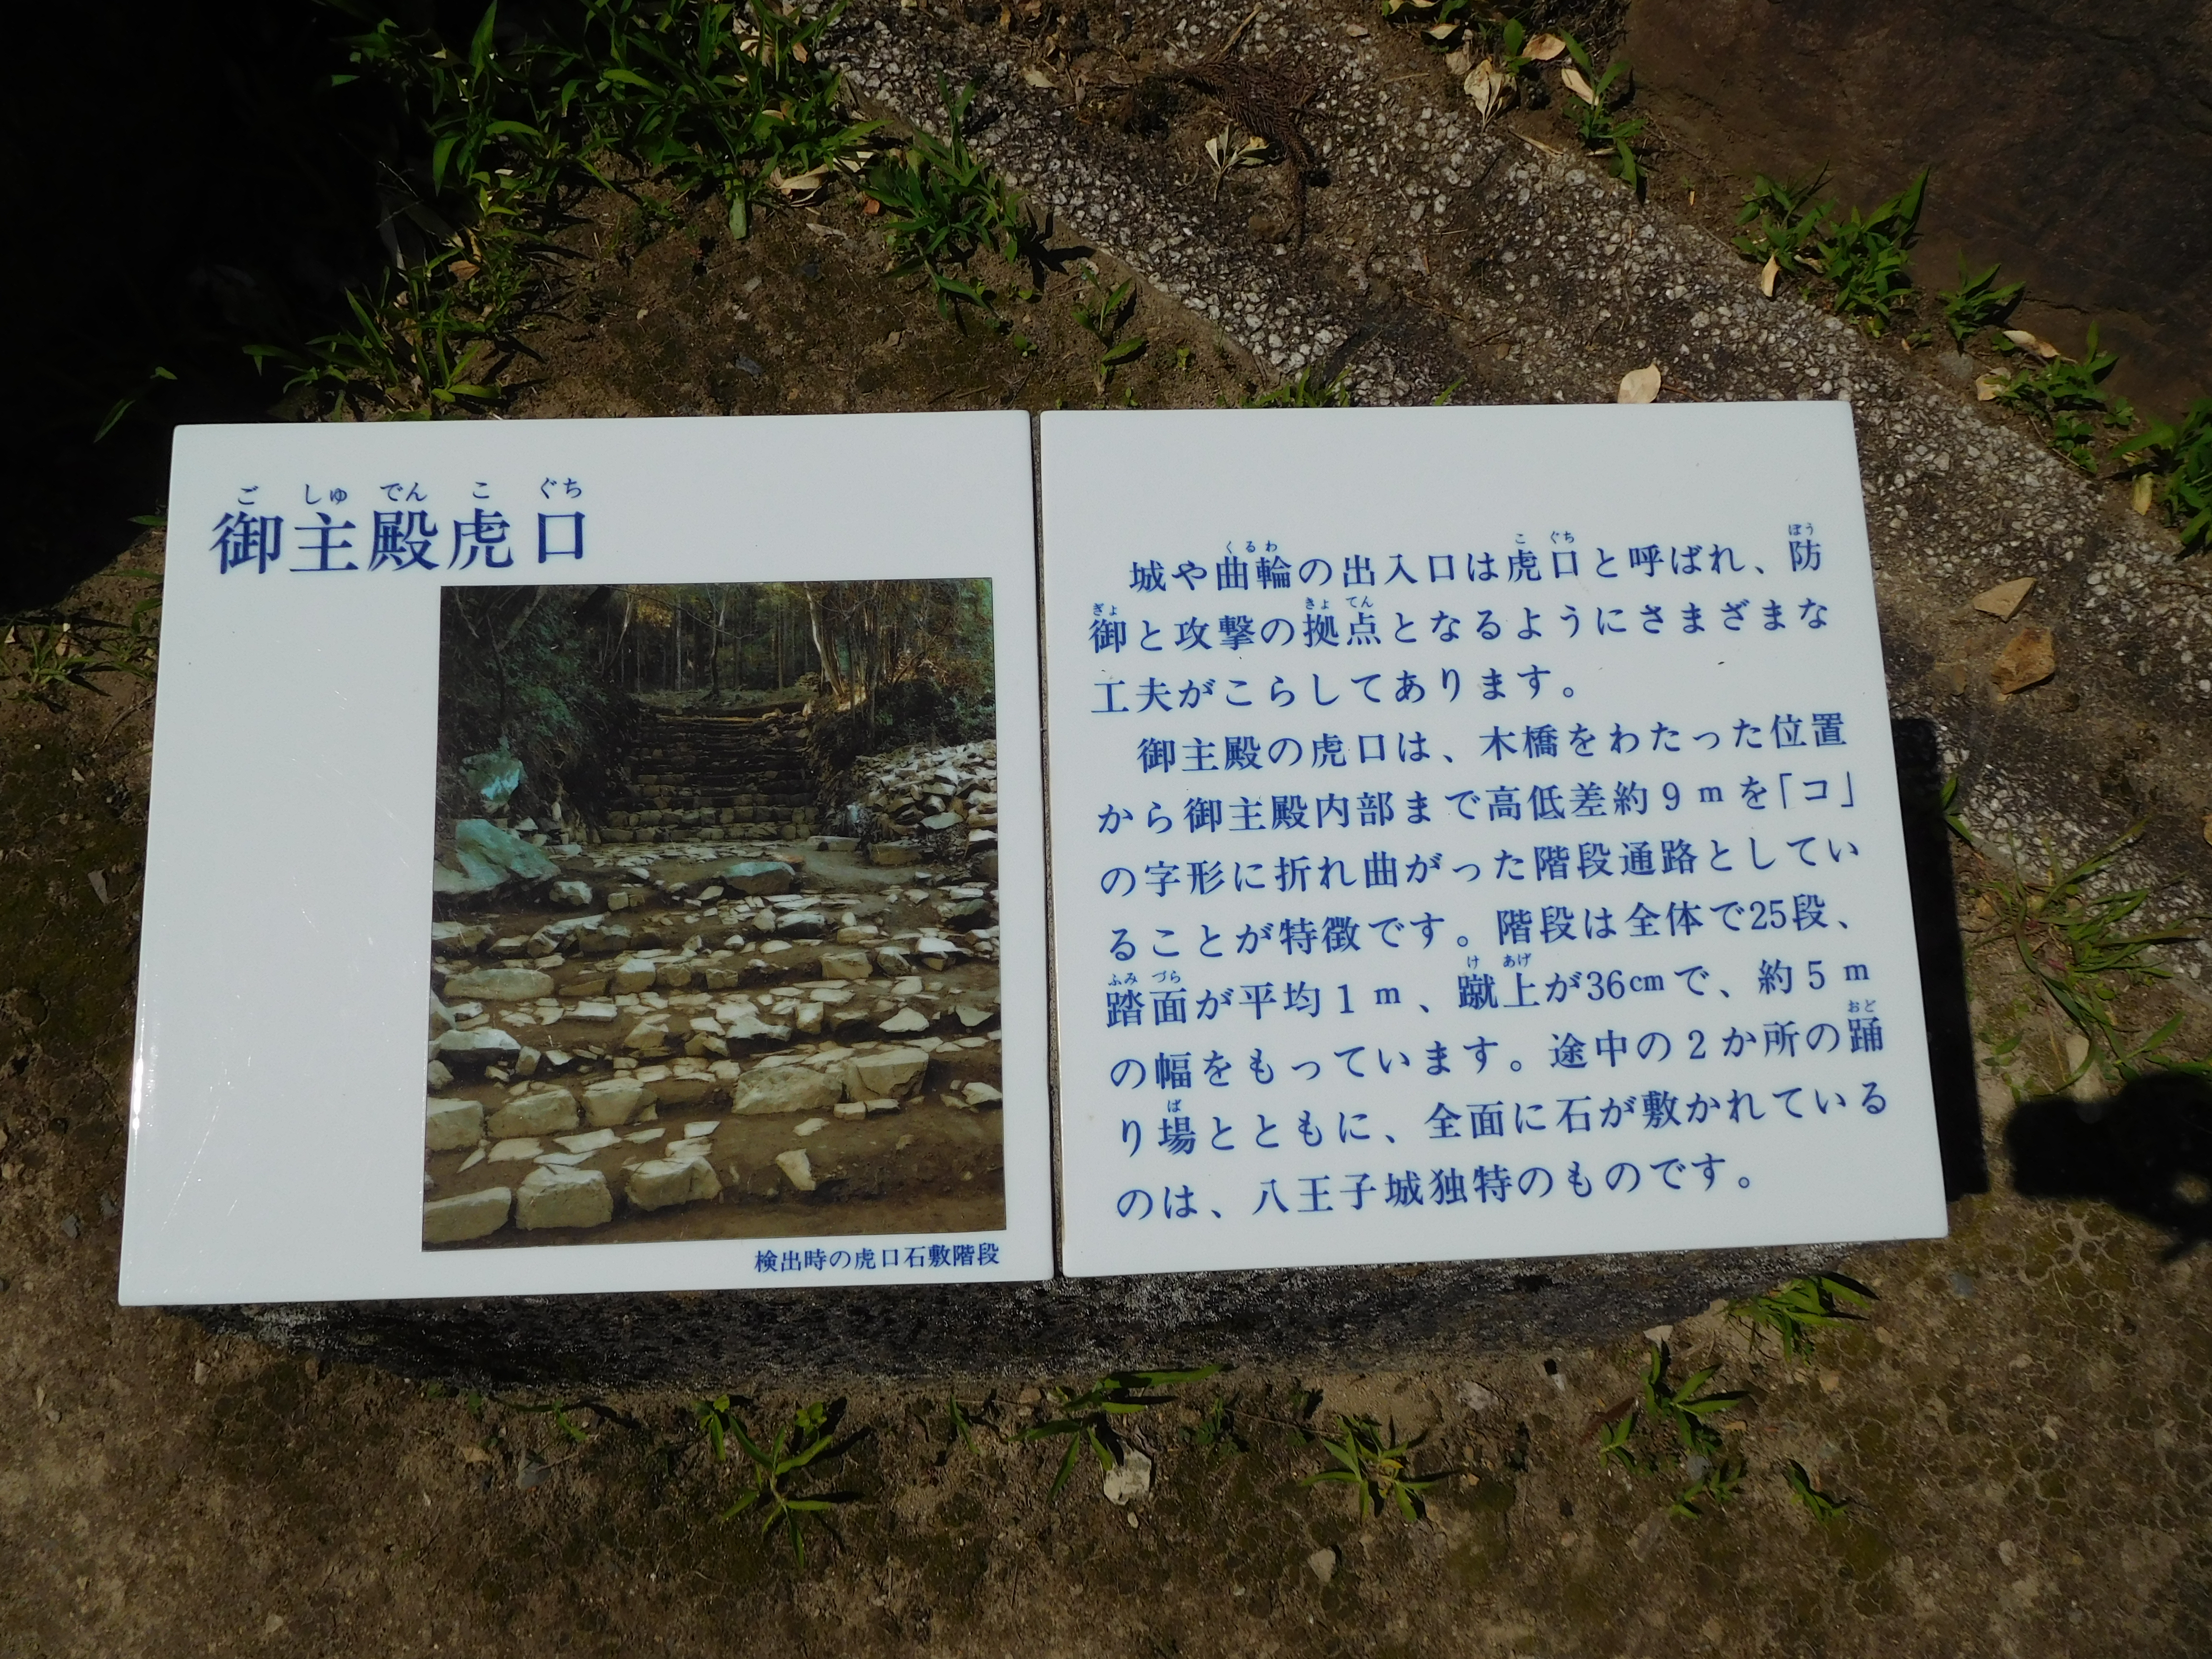 ごしゅでんこぐち
御主殿虎口
検出時の虎口石敷階段
くるわ こぐち ぼう
城や曲輪の出入口は虎口と呼ばれ、防
ぎょ きょてん
御と攻撃の拠点となるようにさまざまな
工夫がこらしてあります。
御主殿の虎口は、木橋をわたった位置
から御主殿内部まで高低差約9mを「コ」
の字形に折れ曲がった階段通路としてい
ることが特徴です。階段は全体で25段、
ふみづら けあげ
踏面が平均1m、蹴上が36㎝で、約5m
おど
の幅をもっています。途中の2か所の踊
ば
り場とともに、全面に石が敷かれている
のは、八王子城独特のものです。